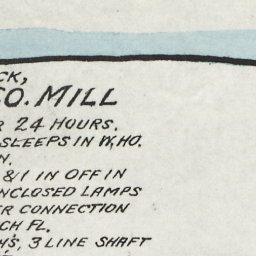 CK,
CO. MILL
24 HOURS.
SLEEPS IN W.HO.
N.
& 1 IN OFF IN
NCLOSED LAMPS
R CONNECTION
CH FL.
H'S, 3 LINE SHAFT